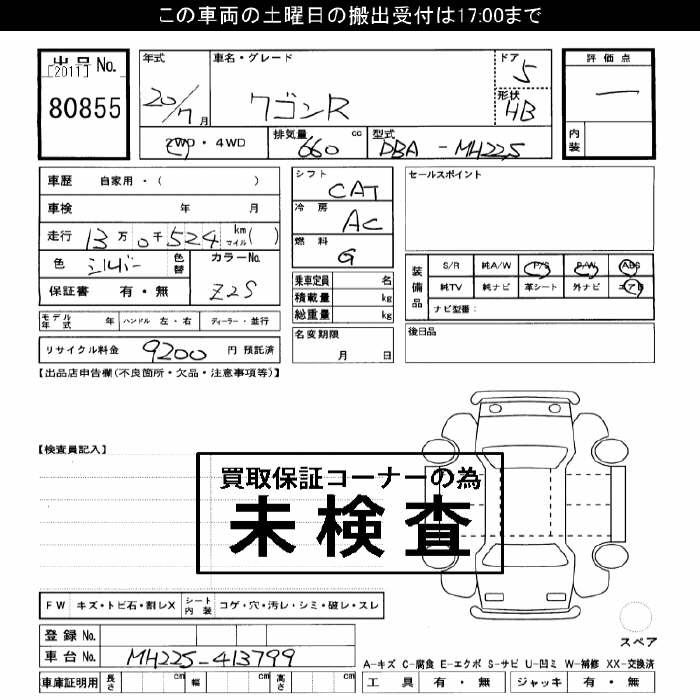 この車両の土曜日の搬出受付は17:00まで
出品 No.
[2011]
80855
年式
20/7月
車名・グレード
ワゴンR
ドア
5
形状
HB
2WD・4WD
排気量 660 cc
型式 DBA-MH22S
評価点
内装
車歴 自家用・( )
車検 年 月
走行 13万0千524 km マイル( )
色 シルバー 色替
カラーNo. Z2S
保証書 有・無
モデル年式 年 ハンドル 左・右 ディーラー・並行
リサイクル料金 9200 円 預託済
シフト CAT
冷房 AC
燃料 G
乗車定員 名
積載量 kg
総重量 kg
名変期限
月 日
セールスポイント
装備品
S/R 純A/W P/S P/W ABS
純TV 純ナビ 革シート 外ナビ エアB
ナビ型番：
後日品
【出品店申告欄(不良箇所・欠品・注意事項等)】
【検査員記入】
買取保証コーナーの為
未検査
FW キズ・トビ石・割レX シート内装 コゲ・穴・汚レ・シミ・破レ・スレ
登録 No.
車台 No. MH22S-413799
車庫証明用 長さ cm 幅 cm 高さ cm
スペア
A-キズ C-腐食 E-エクボ S-サビ U-凹ミ W-補修 XX-交換済
工具 有・無 ジャッキ 有・無